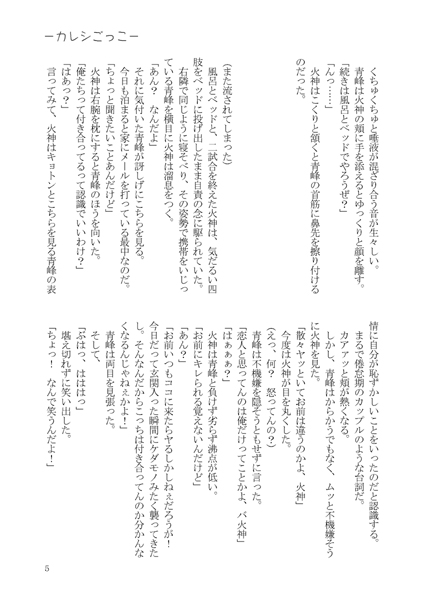 －カレシごっこ－
くちゅくちゅと唾液が混ざり合う音が生々しい。
青峰は火神の頬に手を添えるとゆっくりと顔を離す。
「続きは風呂とベッドでやろうぜ？」
「んっ……」
火神はこくりと頷くと青峰の首筋に鼻先を擦り付ける
のだった。
(また流されてしまった)
風呂とベッドと、二試合を終えた火神は、気だるい四
肢をベッドに投げ出したまま自責の念に駆られていた。
右隣で同じように寝そべり、その姿勢で携帯をいじっ
ている青峰を横目に火神は溜息をつく。
「あん？　なんだよ」
それに気付いた青峰が訝しげにこちらを見る。
今日も泊まると家にメールを打っている最中なのだ。
「ちょっと聞きたいことあんだけど」
火神は右腕を枕にすると青峰のほうを向いた。
「俺たちって付き合ってるって認識でいいわけ？」
「はあっ？」
言ってみて、火神はキョトンとこちらを見る青峰の表
情に自分が恥ずかしいことをいったのだと認識する。
まるで倦怠期のカップルのような台詞だ。
カアァッと頬が熱くなる。
しかし、青峰はからかうでもなく、ムッと不機嫌そう
に火神を見た。
「散々ヤッといてお前は違うのかよ、火神」
今度は火神が目を丸くした。
(えっ、何？　怒ってんの？)
青峰は不機嫌を隠そうともせずに言った。
「恋人と思ってんのは俺だけってことかよ、バ火神」
「はぁぁぁ？」
火神は青峰と負けず劣らず沸点が低い。
「お前にキレられる覚えないんだけど」
「あん？」
「お前いつもココに来たらヤるしかしねぇだろうが！
今日だって玄関入った瞬間にケダモノみたく襲ってきた
し。そんなんだからこっちは付き合ってんのか分かんな
くなるんじゃねぇかよ！」
青峰は両目を見張った。
そして、
「ぶはっ、はははっ」
堪え切れずに笑い出した。
「ちょっ！　なんで笑うんだよ！」
5